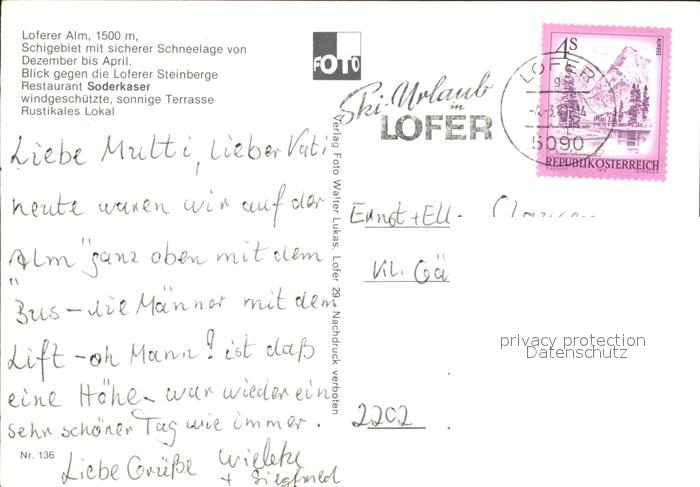 Loferer Alm, 1500 m,
Schigebiet mit sicherer Schneelage von
Dezember bis April.
Blick gegen die Loferer Steinberge
Restaurant Soderkaser
windgeschützte, sonnige Terrasse
Rustikales Lokal
FOTO
Ski-Urlaub
in
LOFER
LOFER
5090
4 S
ALMSEE
REPUBLIK ÖSTERREICH
Liebe Mutti, lieber Vati
heute waren wir auf der
Alm "ganz oben mit dem
Bus - die Männer mit dem
Lift - oh Mann! ist daß
eine Höhe - war wieder ein
sehr schöner Tag wie immer.
Liebe Grüße Wiebke
+ Siegfried
Nr. 136
Verlag Foto Walter Lukas, Lofer 29 Nachdruck verboten
Ernst + Ell
Kl. Gä
2202
privacy protection
Datenschutz